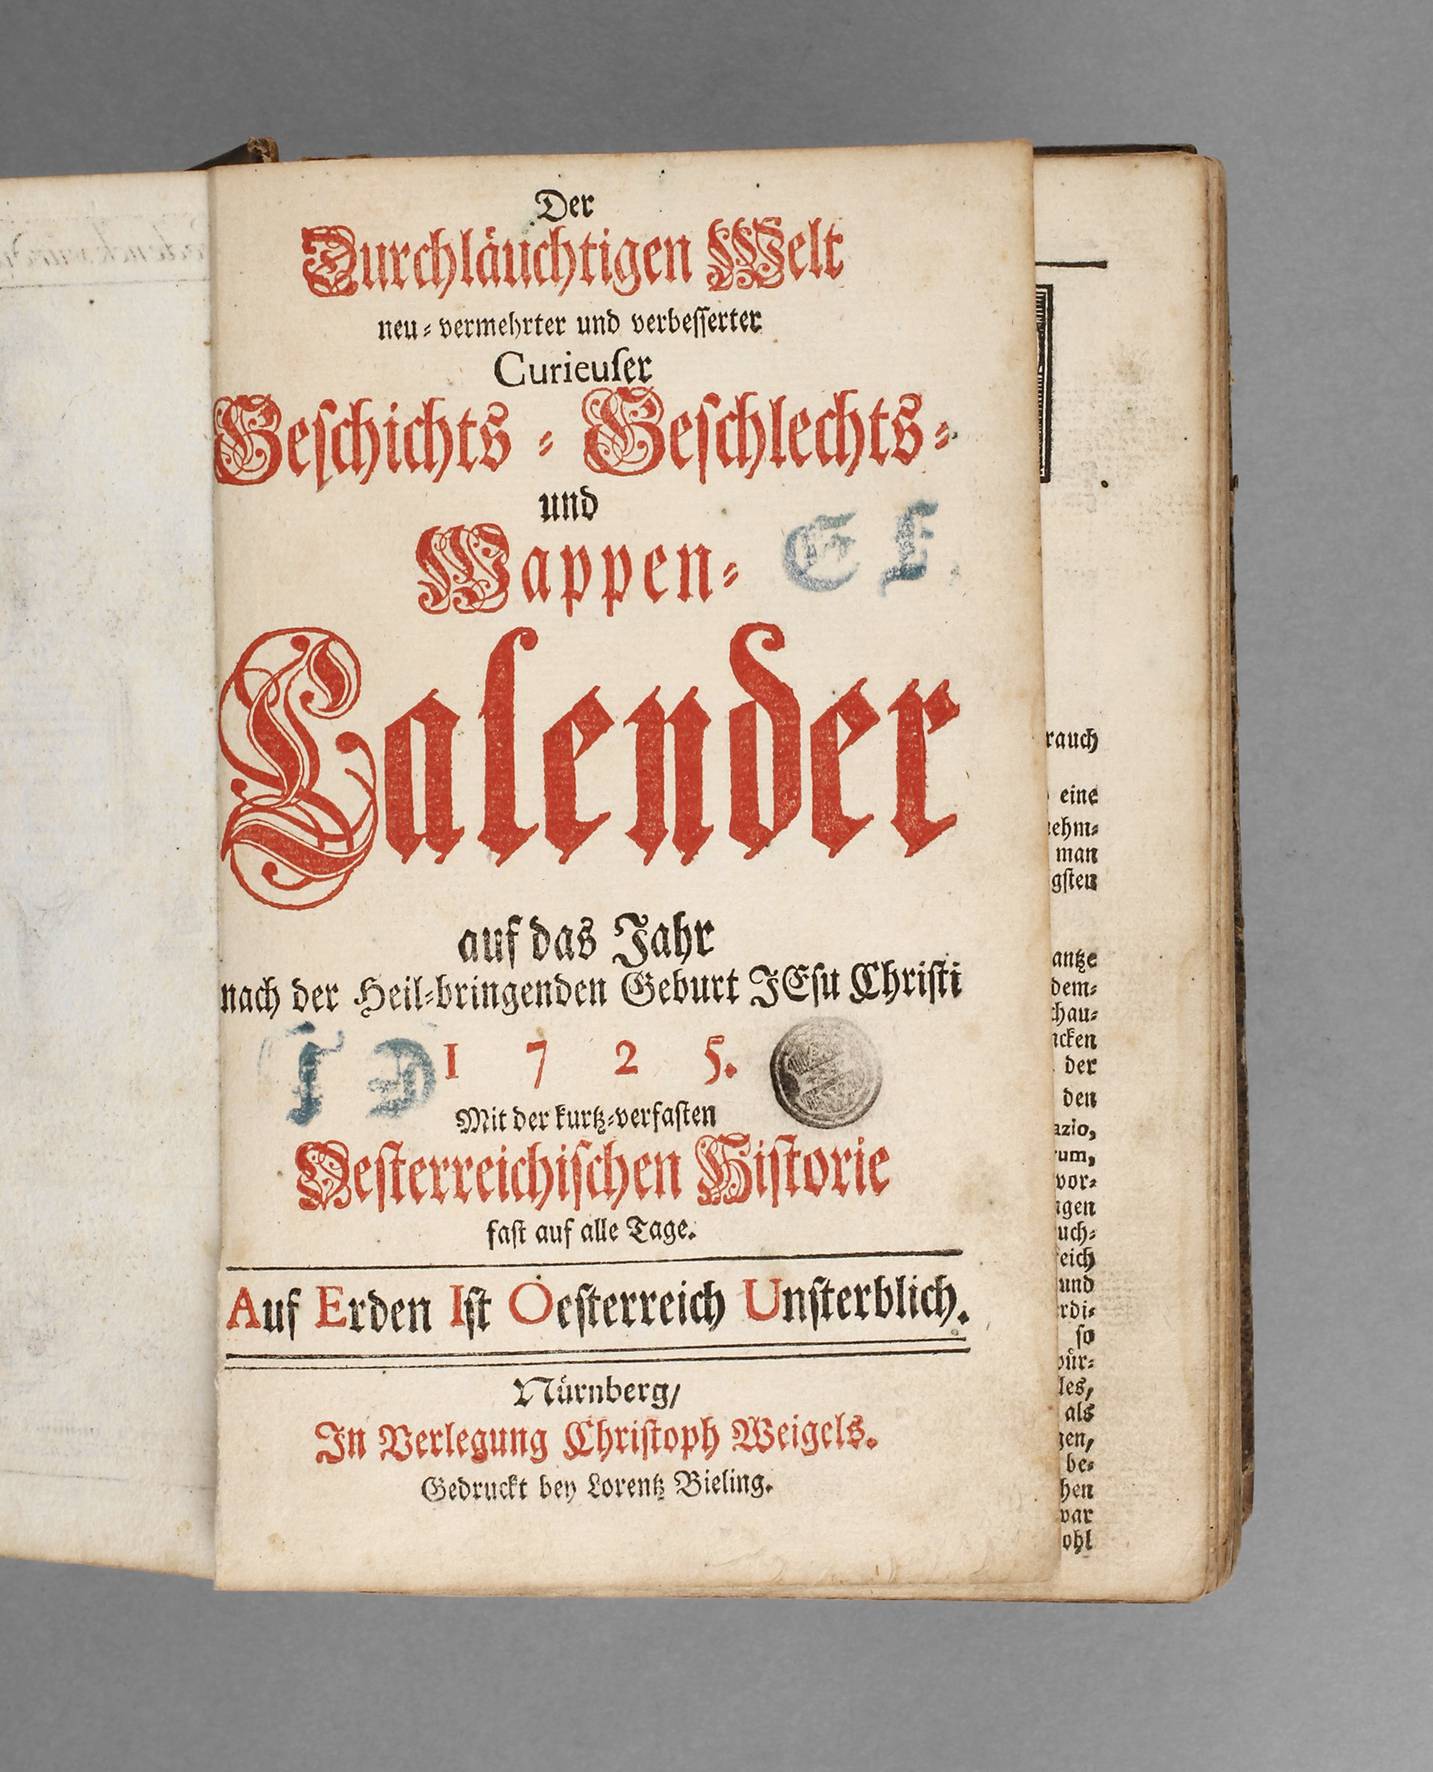 Der
Durchläuchtigen Welt
neu-vermehrter und verbesserter
Curieuser
Geschichts-Geschlechts-
und
Wappen-
G F
Calender
auf das Jahr
nach der Heil-bringenden Geburt JEsu Christi
I D
1725.
Mit der kurtz-verfasten
Oesterreichischen Historie
fast auf alle Tage.
Auf Erden Ist Oesterreich Unsterblich.
Nürnberg/
In Verlegung Christoph Weigels.
Gedruckt bey Lorentz Bieling.
rauch
eine
nehm-
man
gsten
antze
dem-
chau-
ncken
der
den
azio,
rum,
vor-
ngen
uch-
reich
und
rdi-
so
vür-
les,
als
gen,
be-
hen
var
ohl